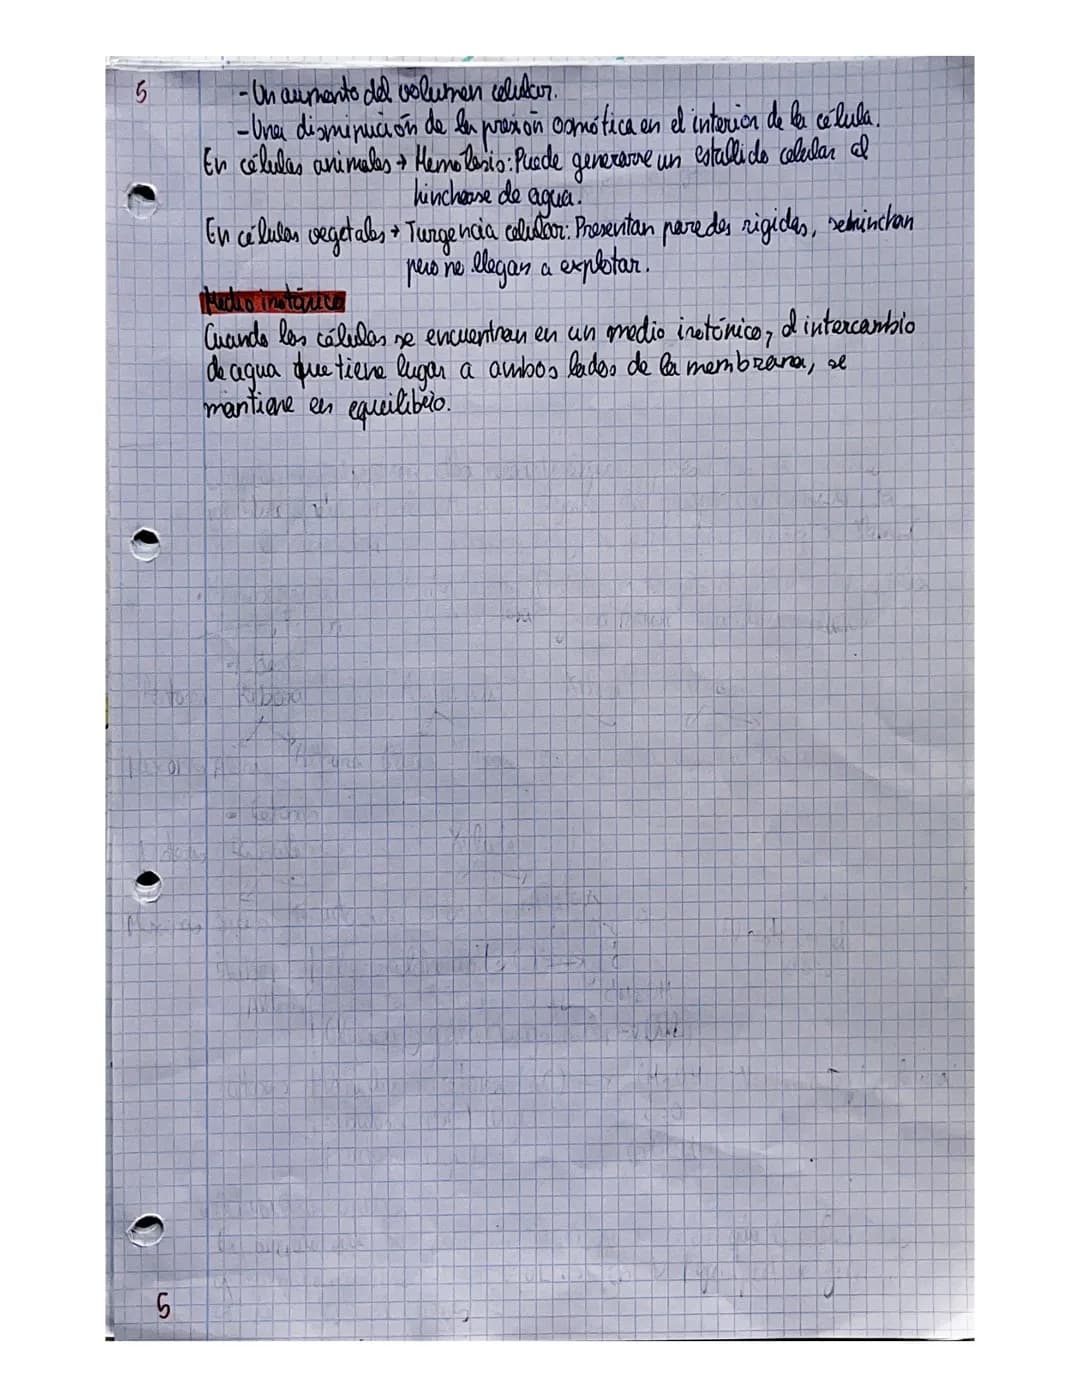 5
- Un aumento del volumen celular.
- Una disminución de la presión osmótica en el interior de la célula.
En células animales → Hemólisis: Puede generarse un estallido celular al
hincharse de agua.
En células vegetales → Turgencia celular: Presentan paredes rígidas, se hinchan
pero no llegan a explotar.
Medio isotónico
Cuando las células se encuentran en un medio isotónico, el intercambio
de agua que tiene lugar a ambos lados de la membrana, se
mantiene en equilibrio.
5